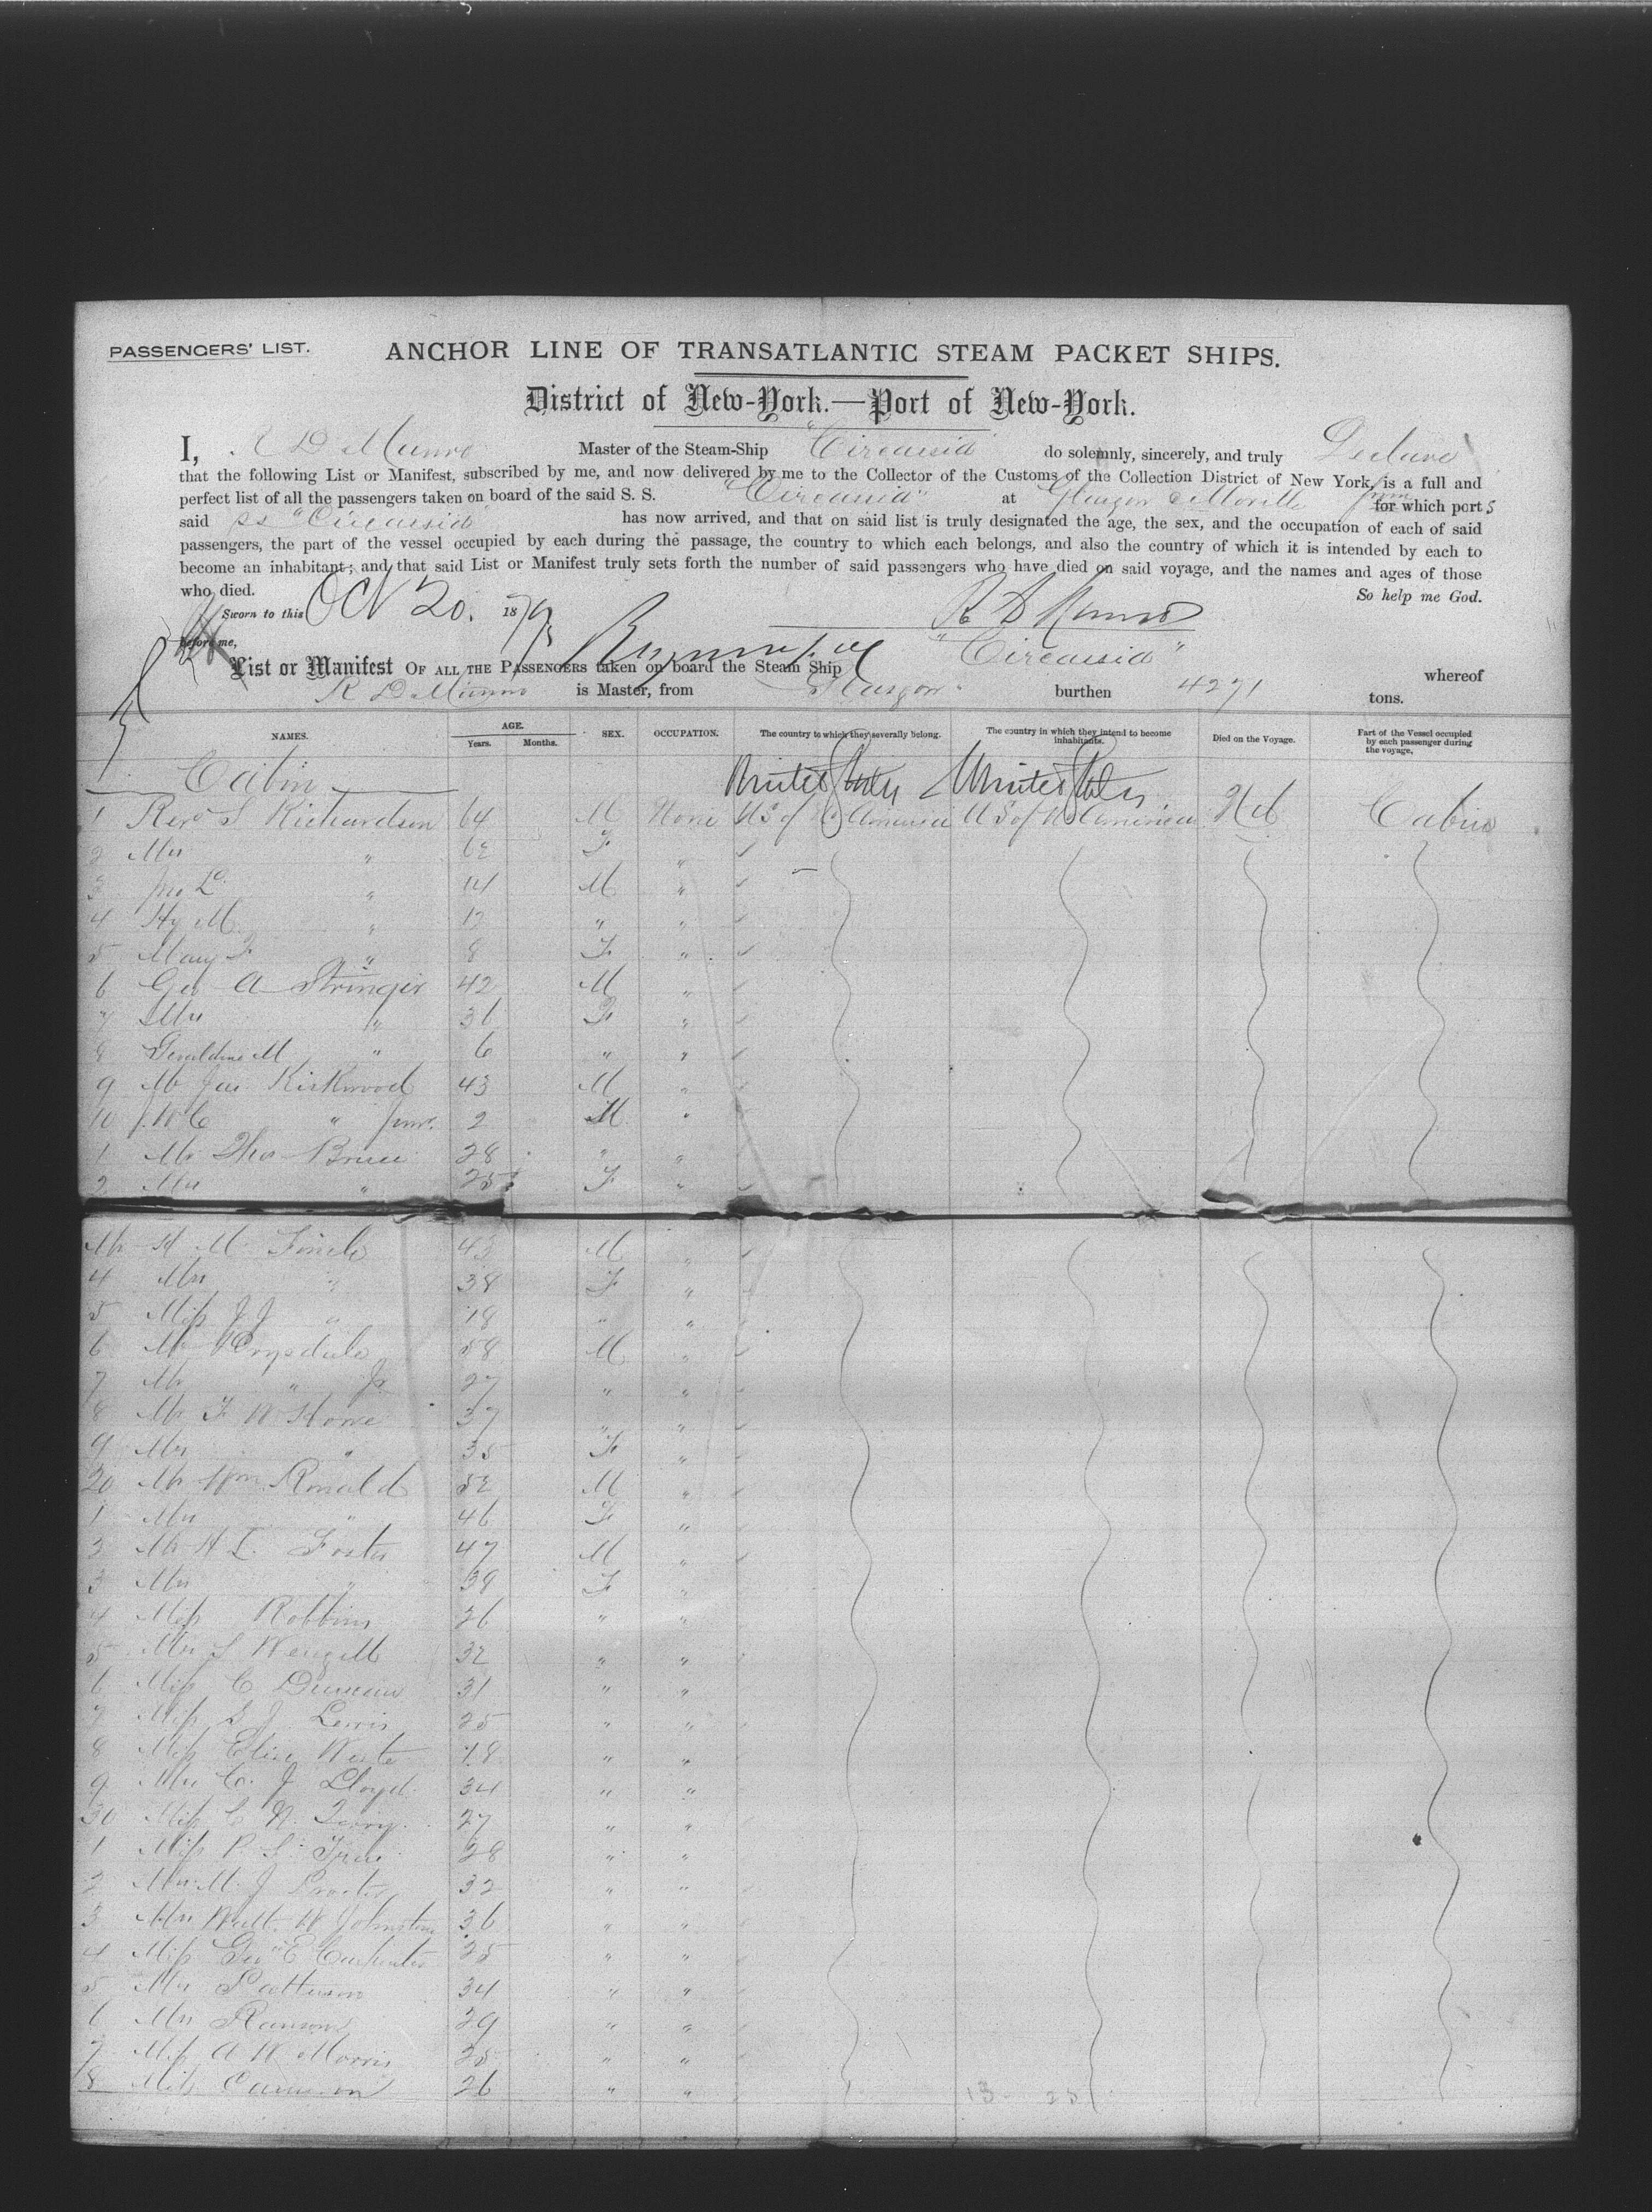 PASSENGERS' LIST.
ANCHOR LINE OF TRANSATLANTIC STEAM PACKET SHIPS.
District of New-York.—Port of New-York.
I, R D Munro Master of the Steam-Ship "Circassia" do solemnly, sincerely, and truly Declare
that the following List or Manifest, subscribed by me, and now delivered by me to the Collector of the Customs of the Collection District of New York, is a full and
perfect list of all the passengers taken on board of the said S. S. "Circassia" at Glasgow & Moville from for which ports
said SS "Circassia" has now arrived, and that on said list is truly designated the age, the sex, and the occupation of each of said
passengers, the part of the vessel occupied by each during the passage, the country to which each belongs, and also the country of which it is intended by each to
become an inhabitant; and that said List or Manifest truly sets forth the number of said passengers who have died on said voyage, and the names and ages of those
who died. So help me God.
Sworn to this Oct 20. 1879 R D Munro
before me,
List or Manifest OF ALL THE PASSENGERS taken on board the Steam Ship "Circassia" whereof
R D Munro is Master, from Glasgow burthen 4271 tons.
NAMES. AGE. Years. Months. SEX. OCCUPATION. The country to which they severally belong. The country in which they intend to become inhabitants. Died on the Voyage. Part of the Vessel occupied by each passenger during the voyage.
Cabin United States United States
1 Revd S Richardson 64 M None US of N America US of N America Nil Cabin
2 Mrs " 62 F "
3 Jno L " 14 M "
4 Hy M " 12 " "
5 Mary F " 8 F "
6 Geo A Stringer 42 M "
7 Mrs " 36 F "
8 Geraldine M " 6 " "
9 Mr Jas Kirkwood 43 M "
10 J. W C " Junr. 2 M "
1 Mr Thos Bruce 28 " "
2 Mrs " 25 F "
Mr H M Finch 43 M "
4 Mrs " 38 F "
5 Miss J J " 18 " "
6 Mr 58 M "
7 Mr " Jr 27 " "
8 Mr F W Howe 37 " "
9 Mrs " 35 F "
20 Mr Wm Ronald 52 M "
1 Mrs " 46 F "
3 Mr H L. Foster 47 M "
3 Mrs " 38 F "
4 Miss Robbins 26 " "
5 Mrs S 32 " "
6 Miss C Duncan 31 " "
7 Miss S J Lewis 25 " "
8 Miss Elise 18 " "
9 Mrs C. J Lloyd 34 " "
30 Miss C 27 " "
1 Miss P. S. 28 " "
2 Mrs M. J Proctor 32 " "
3 Mrs W Johnston 36 " "
4 Miss Geo E Carpenter 25 " "
5 Mrs Patterson 34 " "
6 Mrs Ransom 29 " "
7 Miss A W Morris 25 " "
8 Miss Cameron 26 " "
13 25